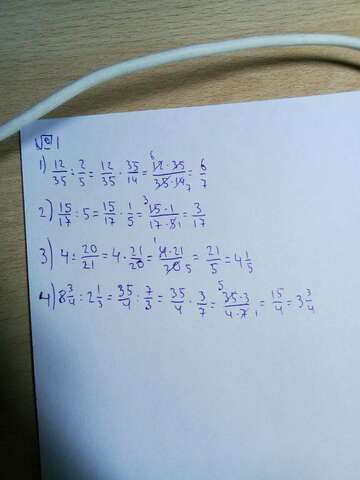 №1
1) 12/35 : 2/5 = 12/35 · 35/14 = 12·35/35·14 = 6/7
2) 15/17 : 5 = 15/17 · 1/5 = 15·1/17·5 = 3/17
3) 4 : 20/21 = 4 · 21/20 = 4·21/20 = 21/5 = 4 1/5
4) 8 3/4 : 2 1/3 = 35/4 : 7/3 = 35/4 · 3/7 = 35·3/4·7 = 15/4 = 3 3/4